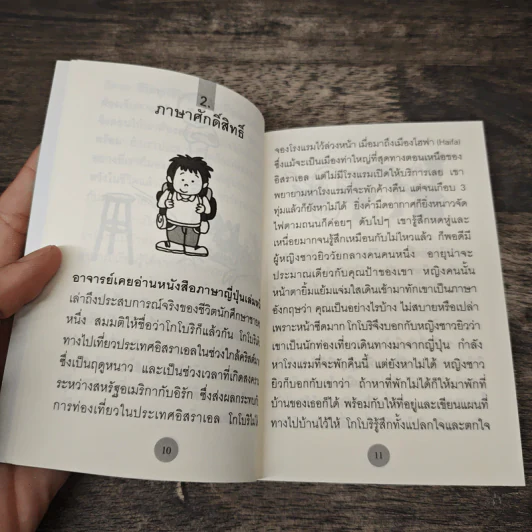 2.
ภาษาศักดิ์สิทธิ์
อาจารย์เคยอ่านหนังสือภาษาญี่ปุ่นเล่ม
เล่าถึงประสบการณ์จริงของชีวิตนักศึกษา
หนึ่ง สมมติให้ชื่อว่าโกโบริก็แล้วกัน
ทางไปเที่ยวประเทศอิสราเอลในช่วงใกล้
ซึ่งเป็นฤดูหนาว และเป็นช่วงเวลาที่เกิด
ระหว่างสหรัฐอเมริกากับอิรัก ซึ่งส่งผล
การท่องเที่ยวในประเทศอิสราเอล
10
จองโรงแรมไว้ล่วงหน้า เมื่อมาถึงเมืองไฮฟา (Haifa)
ซึ่งแม้จะเป็นเมืองท่าใหญ่ที่สุดทางตอนเหนือของ
อิสราเอล แต่ไม่มีโรงแรมเปิดให้บริการเลย เขา
พยายามหาโรงแรมที่จะพักค้างคืน แต่จนเกือบ 3
ทุ่มแล้วก็ยังหาไม่ได้ ยิ่งค่ำมืดอากาศก็ยิ่งหนาวจัด
ไฟตามถนนก็ค่อยๆ ดับไปๆ เขารู้สึกหดหู่และ
เหนื่อยมากจนรู้สึกเหมือนกับไม่ไหวแล้ว ก็พอดีมี
ผู้หญิงชาวยิววัยกลางคนคนหนึ่ง อายุน่าจะ
ประมาณเดียวกับคุณป้าของเขา หญิงคนนั้น
หน้าตายิ้มแย้มแจ่มใสเดินเข้ามาทักเขาเป็นภาษา
อังกฤษว่า คุณเป็นอย่างไรบ้าง ไม่สบายหรือเปล่า
เพราะหน้าซีดมาก โกโบริจึงบอกกับหญิงชาวยิวว่า
เขาเป็นนักท่องเที่ยวเดินทางมาจากญี่ปุ่น กำลัง
หาโรงแรมที่จะพักคืนนี้ แต่ยังหาไม่ได้ หญิงชาว
ยิวก็บอกกับเขาว่า ถ้าหาที่พักไม่ได้ก็ให้มาพักที่
บ้านของเธอก็ได้ พร้อมกับให้ที่อยู่และเขียนแผนที่
ทางไปบ้านไว้ให้ โกโบริรู้สึกทั้งแปลกใจและตกใจ
11